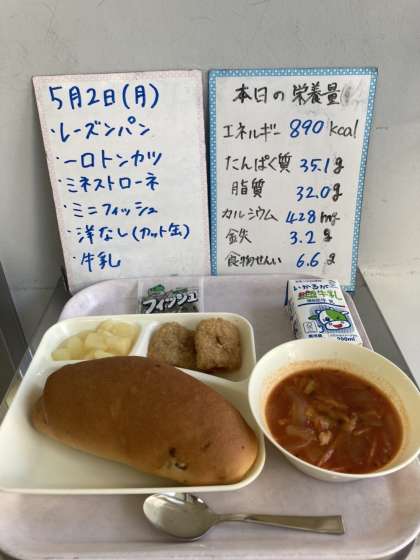 5月2日(月)
・レーズンパン
・一口トンカツ
・ミネストローネ
・ミニフィッシュ
・洋なし(カット缶)
・牛乳
本日の栄養量
エネルギー 890 kcal
たんぱく質 35.1g
脂質 32.0g
カルシウム 428mg
鉄 3.2g
食物せんい 6.6g
フィッシュ
いかるが
牛乳